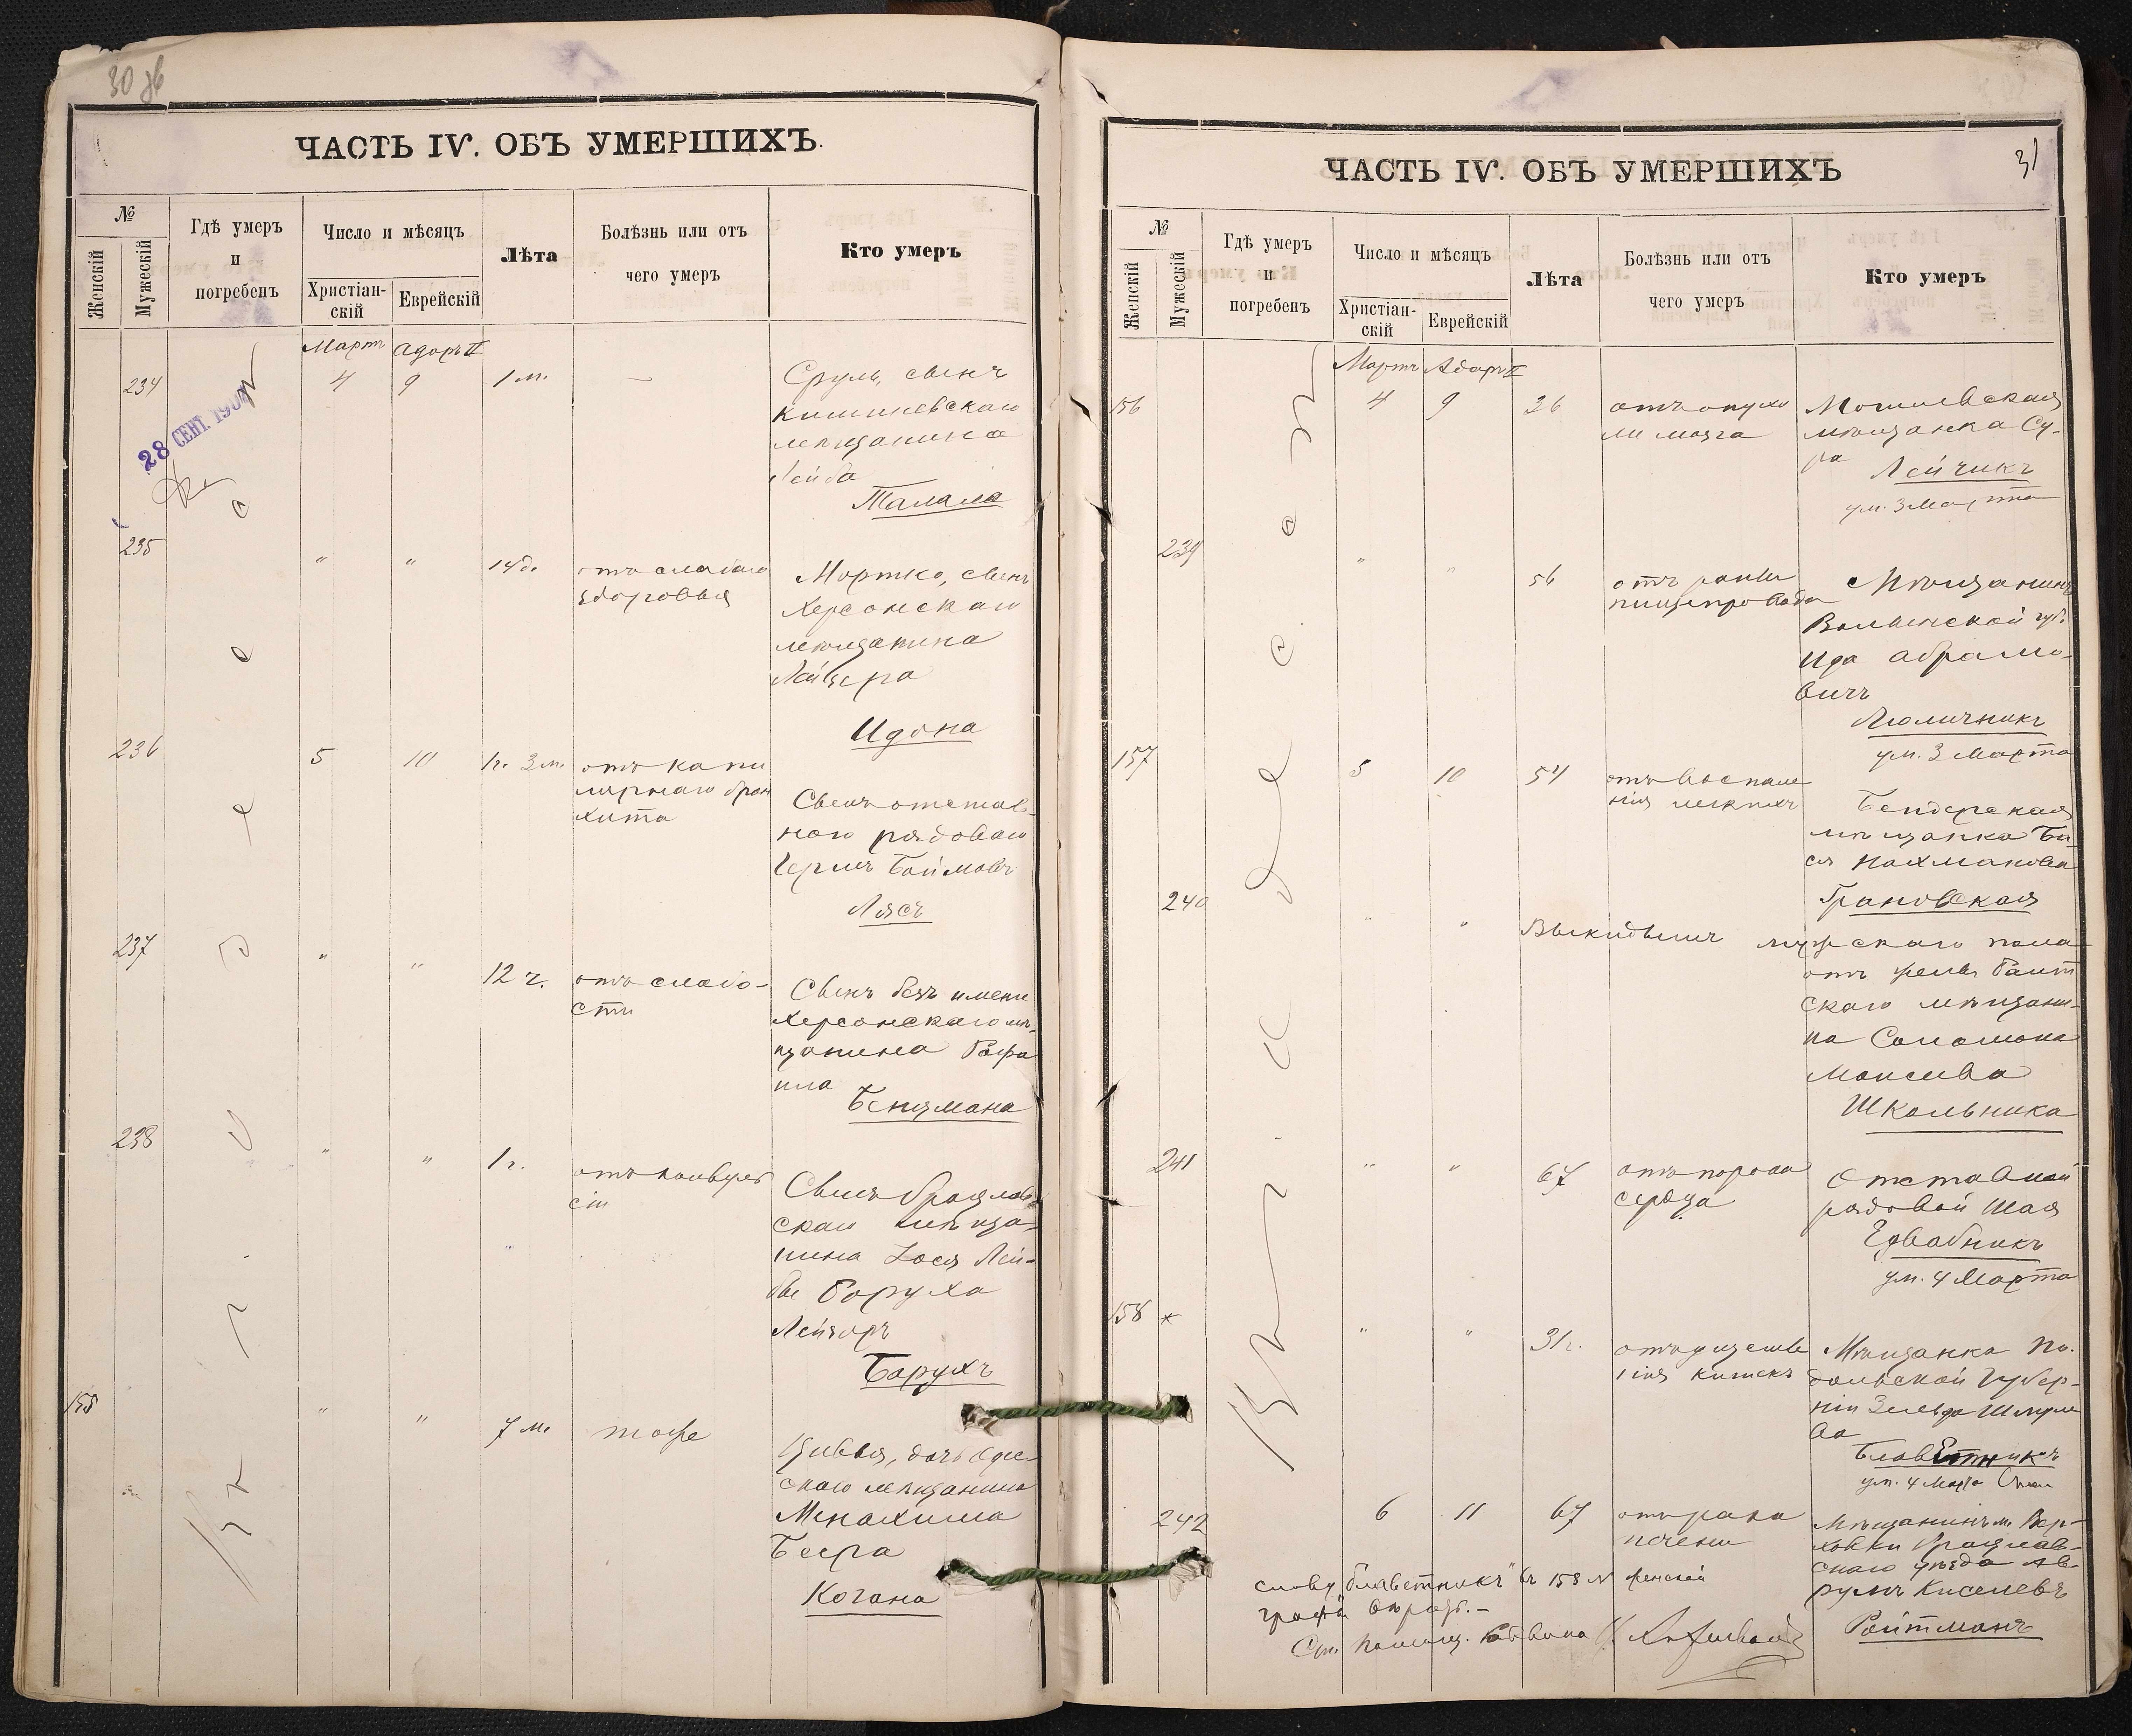 30 об
ЧАСТЬ IV. ОБЪ УМЕРШИХЪ.
№
Женскій
Мужескій
Гдѣ умеръ
и
погребенъ
Число и мѣсяцъ
Христіан-
скій
Еврейскій
Лѣта
Болѣзнь или отъ
чего умеръ
Кто умеръ
Мартъ Адаръ II
234 4 9 1 м. —
Сруль, сынъ
Кишиневскаго
мѣщанина
Лейба
Талала
28 СЕНТ.
235 " " 14 д.
отъ слабаго
здоровья
Мортко, сынъ
Херсонскаго
мѣщанина
Лейзера
236 5 10 1г. 3 м.
отъ капи
лярнаго брон
хита
Сынъ отстав-
ного рядоваго
Лясъ
237 " " 12 ч.
отъ слабо-
сти
Сынъ безъ имени
Херсонскаго мѣ-
щанина Рафа
ила
Бенямана
238 " " 1 г.
отъ конвуль
сіи
Сынъ Брацлав
скаго мѣща-
нина Лей-
бы Боруха
Лейзоръ
Барухъ
155 " " 7 м. тоже
Цивья, дочь Одес-
скаго мѣщанина
Менахима
Беера
Когана
Одесса
31
ЧАСТЬ IV. ОБЪ УМЕРШИХЪ
№
Женскій
Мужескій
Гдѣ умеръ
и
погребенъ
Число и мѣсяцъ
Христіан-
скій
Еврейскій
Лѣта
Болѣзнь или отъ
чего умеръ
Кто умеръ
Мартъ Адаръ II
156 4 9 36
отъ опухо
ли мозга
Могилевская
мѣщанка Су-
ра
Лейчикъ
ум. 3 Марта
239 " " 56
отъ
пищепровода
Мѣщанинъ
Волынской губ.
Абрамо-
вичъ
ум. 3 Марта
157 5 10 54
отъ воспале
нія легкихъ
Бендерская
мѣщанка Ба-
ся Нахманова
Грановская
240 " " Выкидышъ мужского пола
отъ жены Балт
скаго мѣщани-
на Соломона
Моисеева
Школьника
241 " " 67
отъ порока
сердца
Отставной
рядовой Шая
ум. 4 Марта
158 " " 31 г.
отъ ущемле
нія кишекъ
Мѣщанка По-
дольской губер-
ніи Зельда Шмуле
ва
Блаветникъ
ум. 4 Марта
242 6 11 67
отъ рака
печени
Мѣщанинъ м. Вер-
ховки Брацлав-
скаго уѣзда Ав-
румъ Киселевъ
Ройтманъ
слову "Блаветникъ" въ 158 № женской
графы вѣрить.—
Одесса